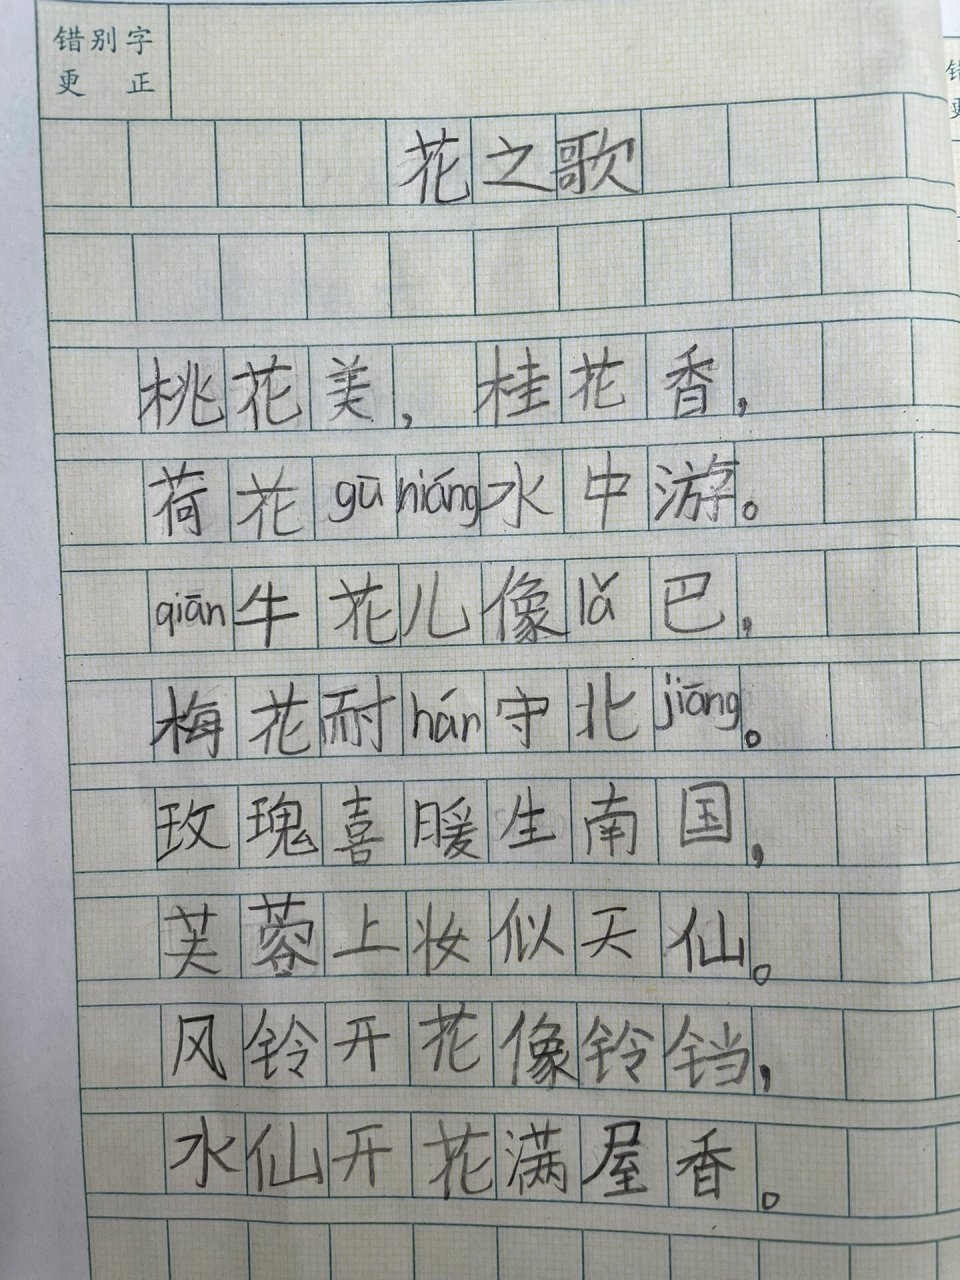 错别字
更 正
花之歌
桃花美，桂花香，
荷花gū niáng水中游。
qiān牛花儿像lǎ巴，
梅花耐hán守北jiāng。
玫瑰喜暖生南国，
芙蓉上妆似天仙。
风铃开花像铃铛，
水仙开花满屋香。